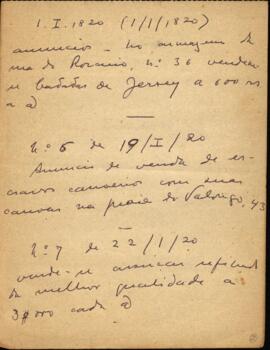 1. I. 1820 (1/1/1820)
annuncios - no armazem da
rua do Rozario, n.º 36 vendem
se batatas de Jersey a 600 rs
a @
N.º 6 de 19/I/20
Annuncio de venda de es-
cravos canoeiros com suas
canoas na praia do Valongo, 43
N.º 7 de 22/1/20
vende-se assucar refinado
da melhor qualidade a
3$000 cada @